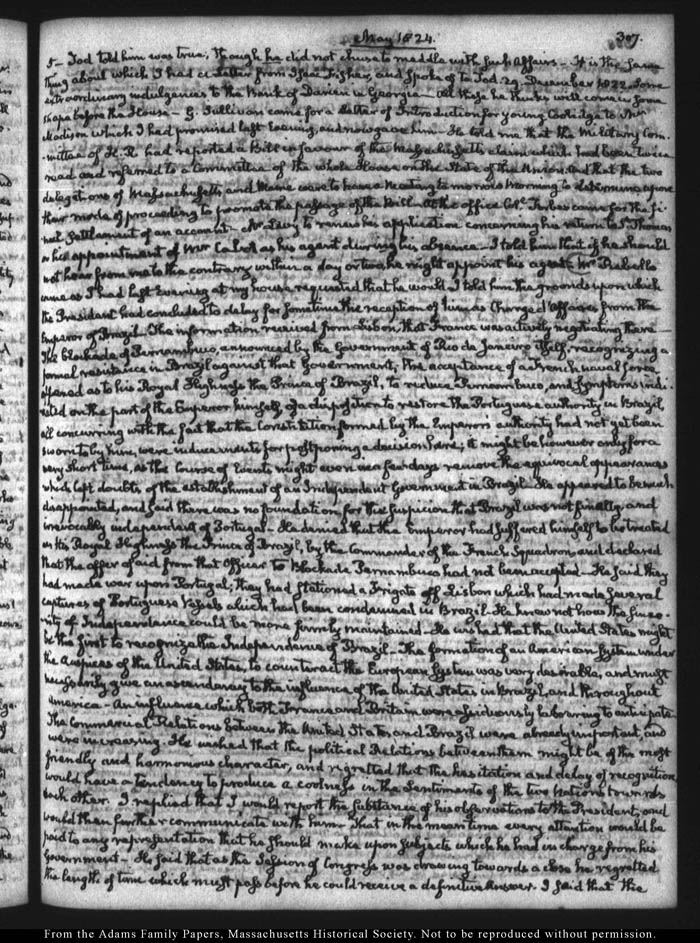 May 1824. 307.
5— Tod told him was true; though he did not chuse to meddle with such Affairs— It is the same
thing about which I had a Letter from Isaac Fisher, and spoke of to Tod 29. December 1822. Some
extraordinary indulgences to the Bank of Darien in Georgia— All these he thinks will come in some
shape before the House— G. Sullivan came for a Letter of Introduction for young Coolidge to Mr
Madison which I had promised last Evening, and now gave him— He told me that the Military Com-
-mittee of H. R. had reported a Bill in favour of the Massachusetts claim which had been twice
read and referred to a Committee of the whole House on the State of the Union. And that the two
delegations of Massachusetts and Maine were to have a Meeting to-morrow Morning to determine upon
their mode of proceeding to promote the passage of the Bill. At the office Coll. Forbes came for the fi-
nal settlement of an account— Mr Levy to renew his application concerning his return to St Thomas
or his appointment of Mr Cabot as his agent during his absence— I told him that if he should
not hear from me to the contrary within a day or two, he might appoint his agent— Mr Rebello
came as I had last Evening at my house requested that he would. I told him the grounds upon which
the President had concluded to delay for sometime the reception of him as Chargé d'Affaires from the
Emperor of Brazil. The information received from Lisbon, that France was actively negotiating there—
The blockade of Pernambuco, announced by the Government of Rio de Janeiro itself, recognizing a
formal resistance in Brazil against that Government; the acceptance of a French naval force
offered as to his Royal Highness the Prince of Brazil, to reduce Pernambuco, and symptoms indi-
cated on the part of the Emperor himself of a disposition to restore the Portuguese authority in Brazil,
all concurring with the fact that the Constitution formed by the Emperor's authority had not yet been
sworn to by him, were inducements for postponing a decision here; it might be however only for a
very short time, as the course of Events might even in a few days remove the equivocal appearances
which left doubts of the establishment of an Independent Government in Brazil. He appeared to be much
disappointed, and said there was no foundation for the suspicion that Brazil was not finally and
irrevocably independent of Portugal— He denied that the Emperor had suffered himself to be treated
as His Royal Highness the Prince of Brazil, by the Commander of the French Squadron, and declared
that the offer of aid from that Officer to Blockade Pernambuco had not been accepted— He said they
had made war upon Portugal; they had stationed a Frigate off Lisbon which had made several
captures of Portuguese Vessels which had been condemned in Brazil. He knew not how the since-
rity of Independence could be more firmly maintained— He wished that the United States might
be the first to recognize the Independence of Brazil— The formation of an American System under
the auspices of the United States, to counteract the European System was very desirable, and must
necessarily give an ascendancy to the influence of the United States in Brazil, and throughout
America— An influence which both France and Britain were assiduously labouring to anticipate.
The Commercial Relations between the United States and Brazil were already important, and
were increasing. He wished that the political Relations between them might be of the most
friendly and harmonious character, and regretted that the hesitation and delay of recognition
would have a tendency to produce a coolness in the Sentiments of the two Nations towards
each other. I replied that I would report the substance of his observations to the President, and
would then further communicate with him. That in the mean time every attention would be
paid to any representation that he should make upon subjects which he had in charge from his
Government— He said that as the Session of Congress was drawing towards a close he regretted
the length of time which must pass before he could receive a definitive answer. I said that the
From the Adams Family Papers, Massachusetts Historical Society. Not to be reproduced without permission.